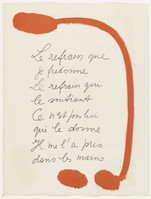 Le refrain que
je fredonne
Le refrain qui
le
Ce n'est pas lui
qui le donne
Il me l'a pris
dans les mains